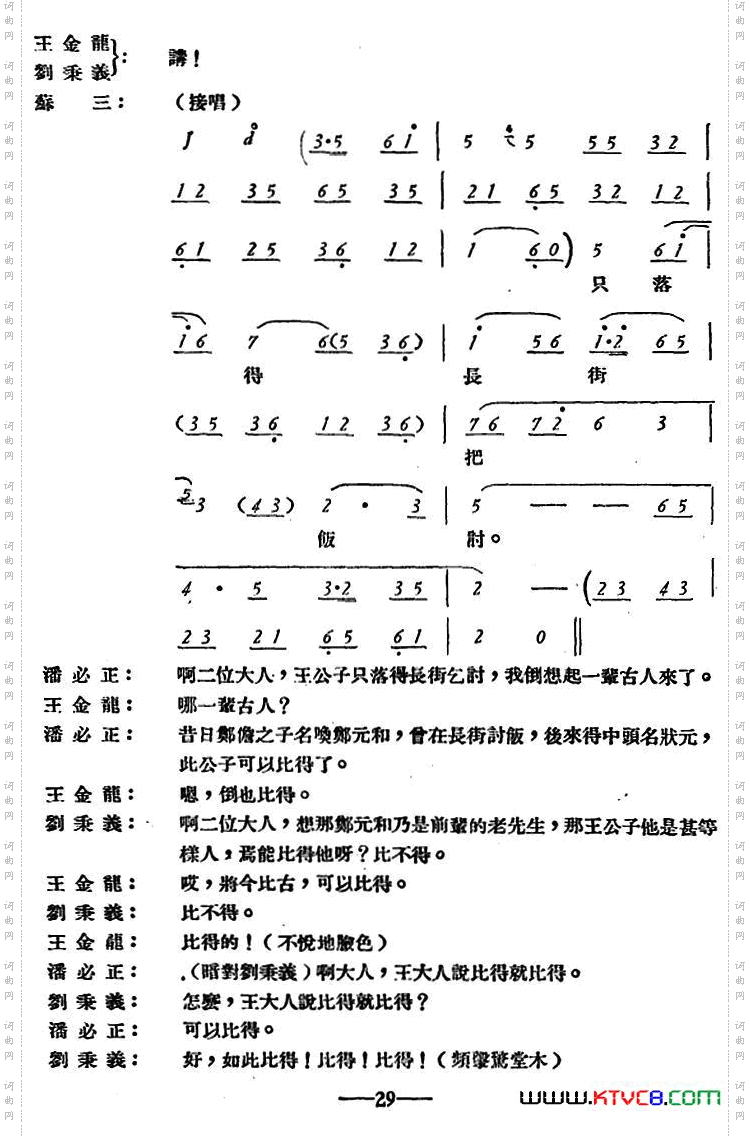 王金龍
劉秉義}： 請！
蘇　三： （接唱）
(3·5 6 1 | 5 5 5 5 3 2 |
1 2 3 5 6 5 3 5 | 2 1 6 5 3 2 1 2 |
6 1 2 5 3 6 1 2 | 1 6 0) 5 6 1 |
只 落
1 6 7 6(5 3 6) | 1 5 6 1·2 6 5 |
得 長 街
(3 5 3 6 1 2 3 6) | 7 6 7 2 6 3 |
把
5 3 (4 3) 2 · 3 | 5 — — 6 5 |
飯 討。
4 · 5 3·2 3 5 | 2 — (2 3 4 3 |
2 3 2 1 6 5 6 1 | 2 0 ‖
潘必正： 啊二位大人，王公子只落得長街乞討，我倒想起一輩古人來了。
王金龍： 哪一輩古人？
潘必正： 昔日鄭儋之子名喚鄭元和，曾在長街討飯，後來得中頭名狀元，
此公子可以比得了。
王金龍： 嗯，倒也比得。
劉秉義： 啊二位大人，想那鄭元和乃是前輩的老先生，那王公子他是甚等
樣人，焉能比得他呀？比不得。
王金龍： 哎，將今比古，可以比得。
劉秉義： 比不得。
王金龍： 比得的！（不悅地臉色）
潘必正： （暗對劉秉義）啊大人，王大人說比得就比得。
劉秉義： 怎麽，王大人說比得就比得？
潘必正： 可以比得。
劉秉義： 好，如此比得！比得！比得！（頻擊驚堂木）
—29—
www.KTVC8.com
词曲网